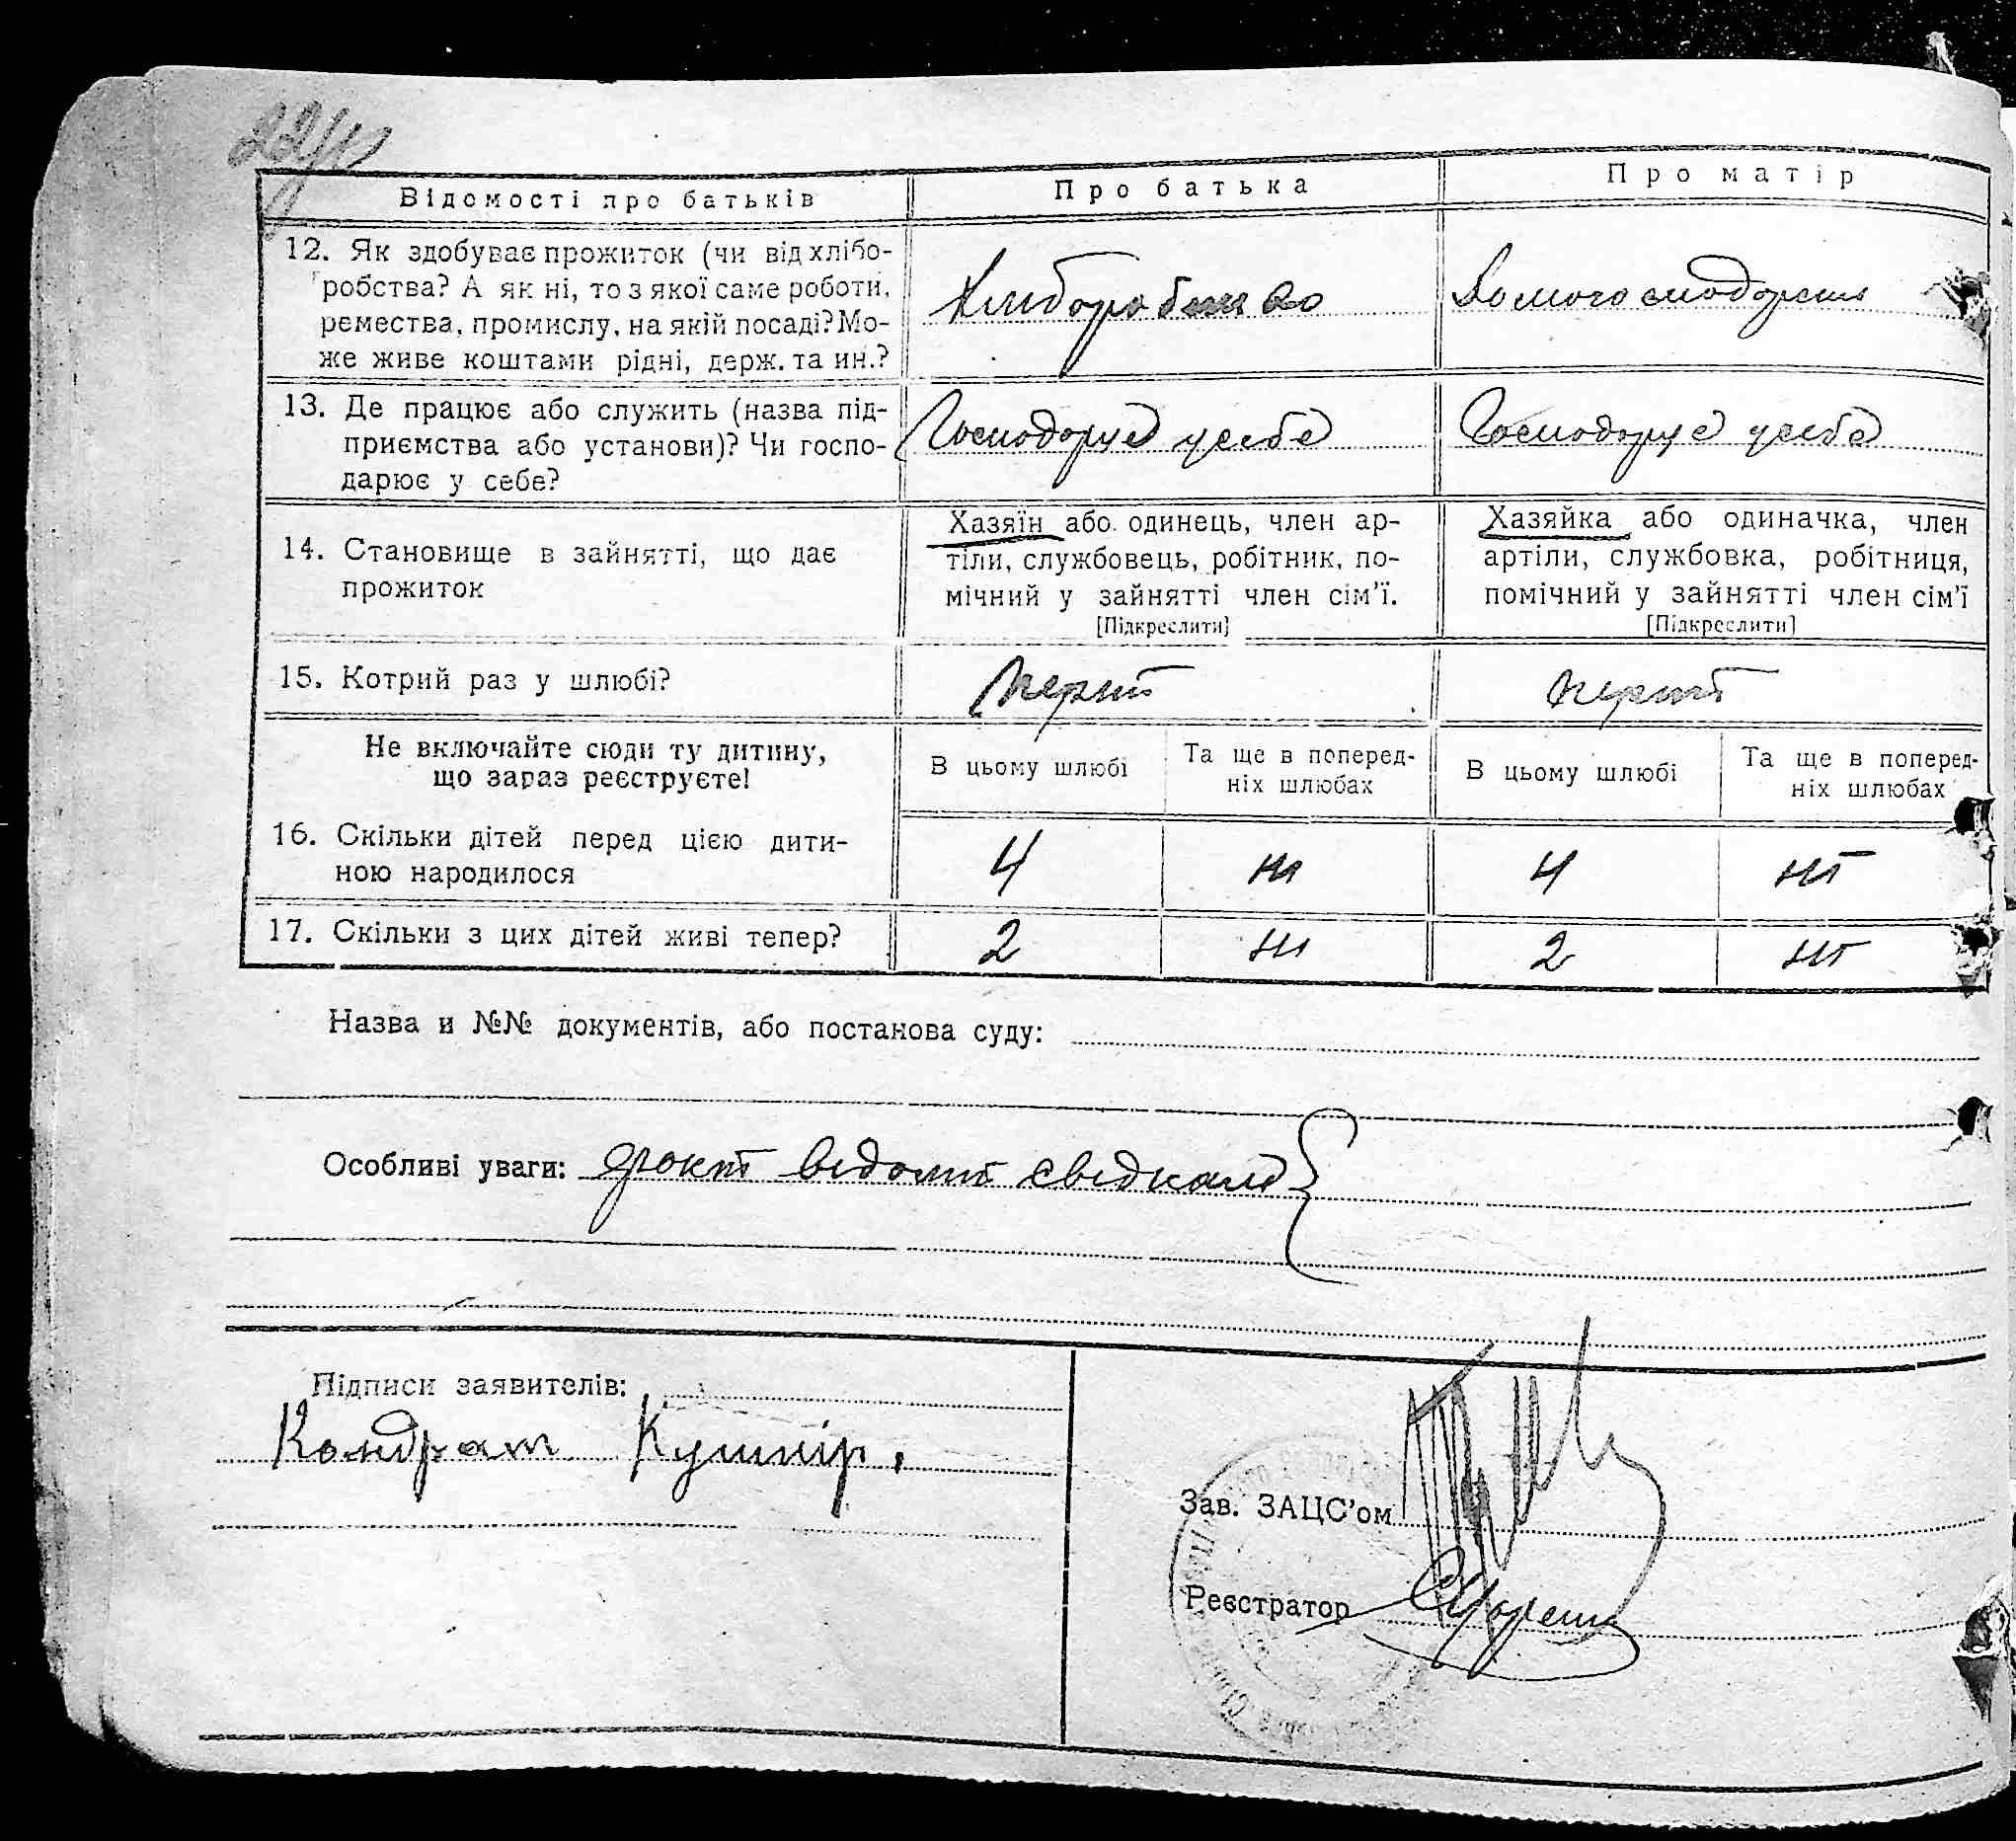 Відомості про батьків
Про батька
Про матір
12. Як здобуває прожиток (чи від хлібо-
робства? А як ні, то з якої саме роботи,
ремества, промислу, на якій посаді? Мо-
же живе коштами рідні, держ. та ин.?
13. Де працює або служить (назва під-
приємства або установи)? Чи госпо-
дарює у себе?
Господорує у себе
Господорує у себе
14. Становище в зайнятті, що дає
прожиток
Хазяїн або одинець, член ар-
тіли, службовець, робітник, по-
мічний у зайнятті член сім'ї.
[Підкреслити]
Хазяйка або одиначка, член
артіли, службовка, робітниця,
помічний у зайнятті член сім'ї
[Підкреслити]
15. Котрий раз у шлюбі?
Не включайте сюди ту дитину,
що зараз реєструєте!
В цьому шлюбі
Та ще в поперед-
ніх шлюбах
В цьому шлюбі
Та ще в поперед-
ніх шлюбах
16. Скільки дітей перед цією дити-
ною народилося
4
4
17. Скільки з цих дітей живі тепер?
2
2
Назва и №№ документів, або постанова суду:
Особливі уваги:
Підписи заявителів:
Кондрат Кушнір.
Зав. ЗАЦС'ом
Реєстратор